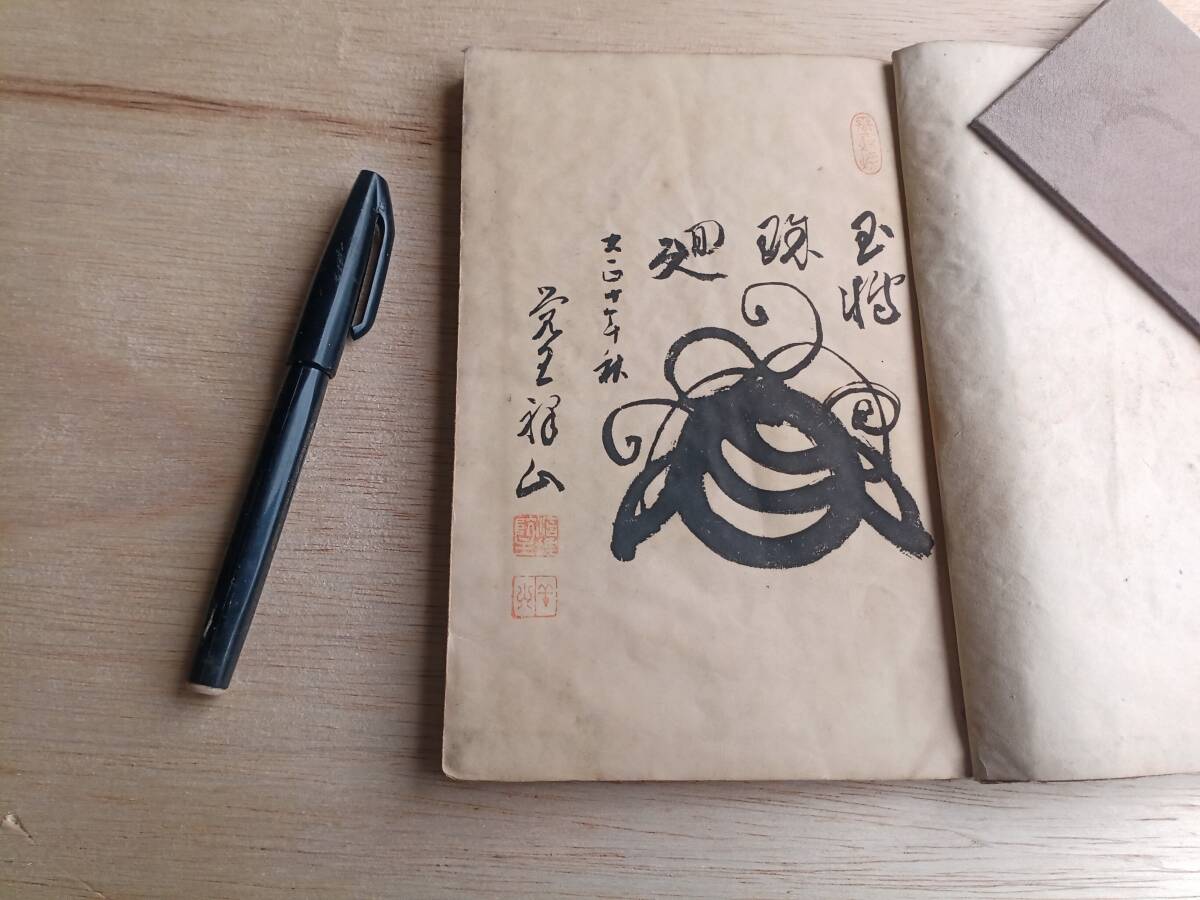 玉轉
珠
廻
大正十年秋
覺王祥山